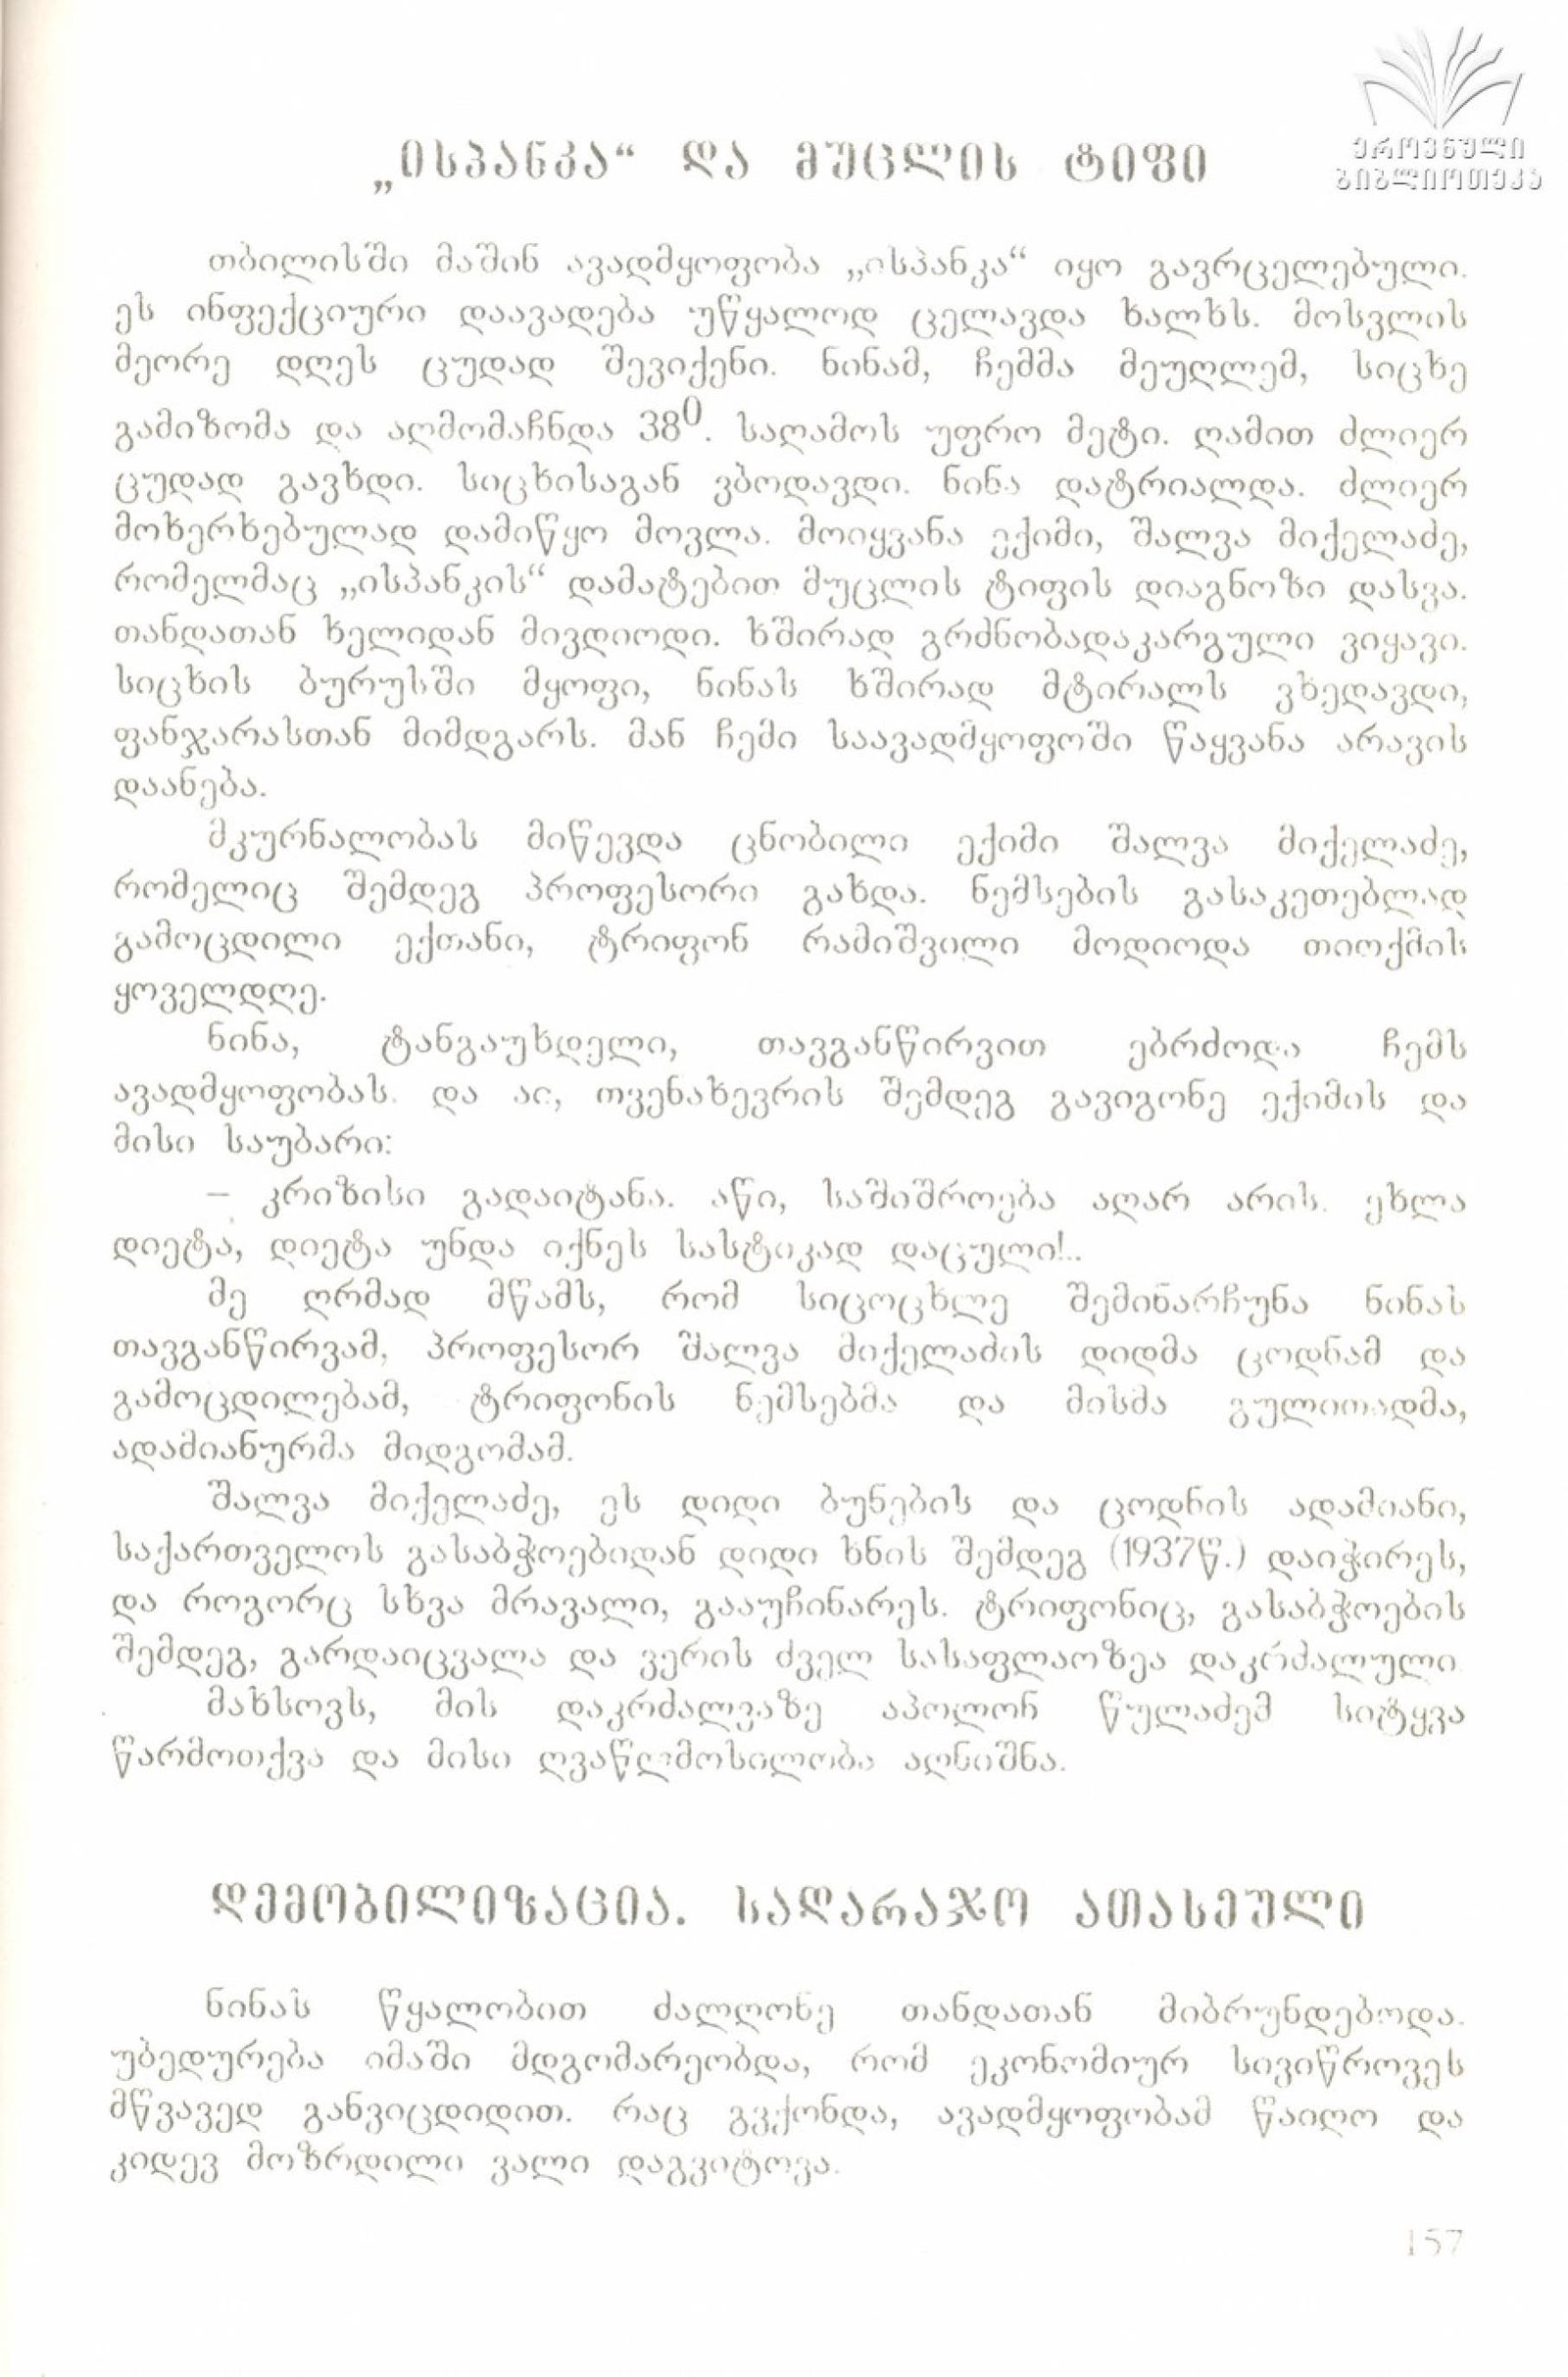 ეროვნული
ბიბლიოთეკა
„ისპანკა“ და მუცლის ტიფი
თბილისში მაშინ ავადმყოფობა „ისპანკა“ იყო გავრცელებული.
ეს ინფექციური დაავადება უწყალოდ ცელავდა ხალხს. მოსვლის
მეორე დღეს ცუდად შევიქენი. ნინამ, ჩემმა მეუღლემ, სიცხე
გამიზომა და აღმომაჩნდა 38⁰. საღამოს უფრო მეტი. ღამით ძლიერ
ცუდად გავხდი. სიცხისაგან ვბოდავდი. ნინა დატრიალდა. ძლიერ
მოხერხებულად დამიწყო მოვლა. მოიყვანა ექიმი, შალვა მიქელაძე,
რომელმაც „ისპანკის“ დამატებით მუცლის ტიფის დიაგნოზი დასვა.
თანდათან ხელიდან მივდიოდი. ხშირად გრძნობადაკარგული ვიყავი.
სიცხის ბურუსში მყოფი, ნინას ხშირად მტირალს ვხედავდი,
ფანჯარასთან მიმდგარს. მან ჩემი საავადმყოფოში წაყვანა არავის
დაანება.
მკურნალობას მიწევდა ცნობილი ექიმი შალვა მიქელაძე,
რომელიც შემდეგ პროფესორი გახდა. ნემსების გასაკეთებლად
გამოცდილი ექთანი, ტრიფონ რამიშვილი მოდიოდა თიოქმის
ყოველდღე.
ნინა, ტანგაუხდელი, თავგანწირვით ებრძოდა ჩემს
ავადმყოფობას. და აი, თვენახევრის შემდეგ გავიგონე ექიმის და
მისი საუბარი:
– კრიზისი გადაიტანა. აწი, საშიშროება აღარ არის. ეხლა
დიეტა, დიეტა უნდა იქნეს სასტიკად დაცული!..
მე ღრმად მწამს, რომ სიცოცხლე შემინარჩუნა ნინას
თავგანწირვამ, პროფესორ შალვა მიქელაძის დიდმა ცოდნამ და
გამოცდილებამ, ტრიფონის ნემსებმა და მისმა გულითადმა,
ადამიანურმა მიდგომამ.
შალვა მიქელაძე, ეს დიდი ბუნების და ცოდნის ადამიანი,
საქართველოს გასაბჭოებიდან დიდი ხნის შემდეგ (1937წ.) დაიჭირეს,
და როგორც სხვა მრავალი, გააუჩინარეს. ტრიფონიც, გასაბჭოების
შემდეგ, გარდაიცვალა და ვერის ძველ სასაფლაოზეა დაკრძალული.
მახსოვს, მის დაკრძალვაზე აპოლონ წულაძემ სიტყვა
წარმოთქვა და მისი ღვაწლმოსილობა აღნიშნა.
დემობილიზაცია. სადარაჯო ათასეული
ნინას წყალობით ძალღონე თანდათან მიბრუნდებოდა.
უბედურება იმაში მდგომარეობდა, რომ ეკონომიურ სივიწროვეს
მწვავედ განვიცდიდით. რაც გვქონდა, ავადმყოფობამ წაიღო და
კიდევ მოზრდილი ვალი დაგვიტოვა.
157